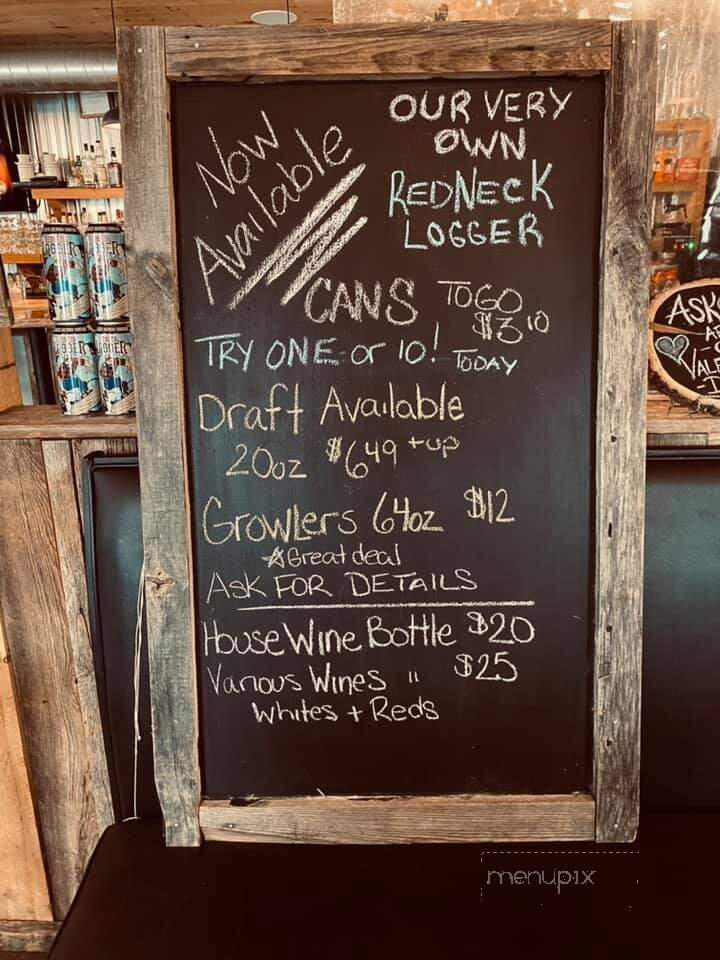 Now
Available
OUR VERY
OWN
REDNECK
LOGGER
CANS TO GO
$3 10
TRY ONE or 10! TODAY
Draft Available
20oz $6 49 + up
Growlers 64oz $12
☆Great deal
ASK FOR DETAILS
House Wine Bottle $20
Various Wines " $25
Whites + Reds
ASK
menupix